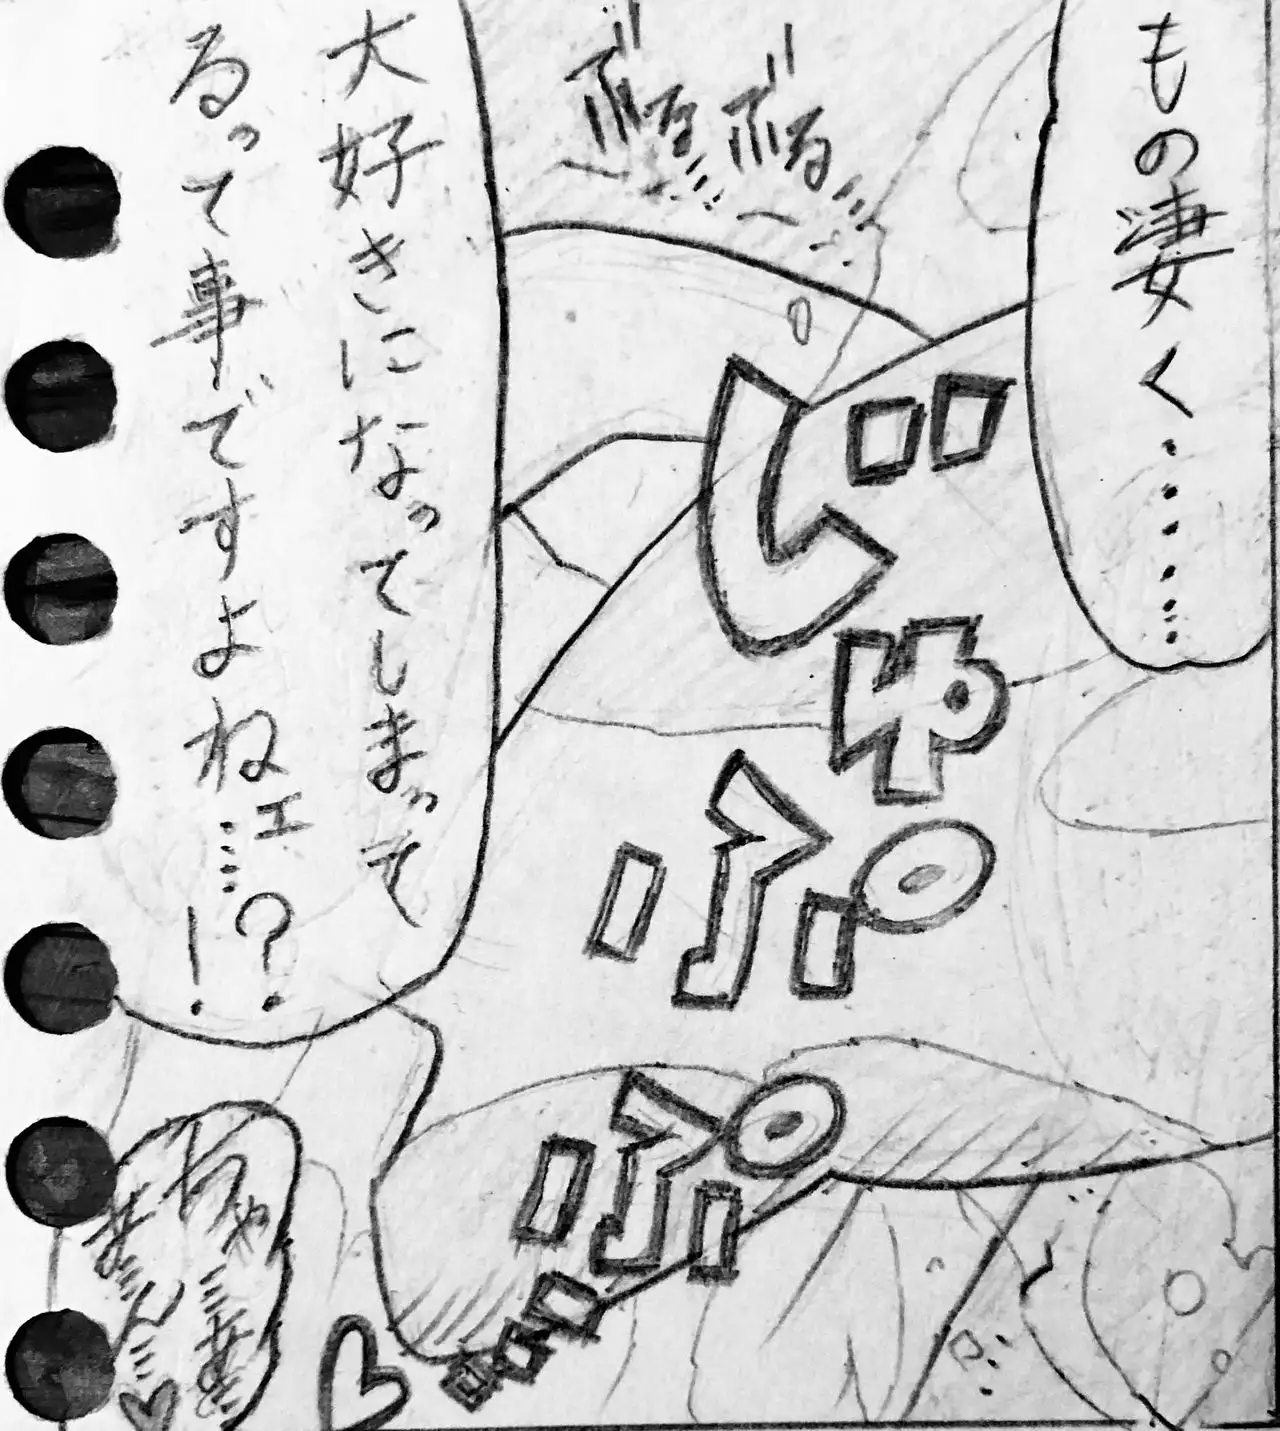 もの凄く………
ぶるぶる…
じゅぷぷ…♡
大好きになってしまって
るって事ですよねェ…?!